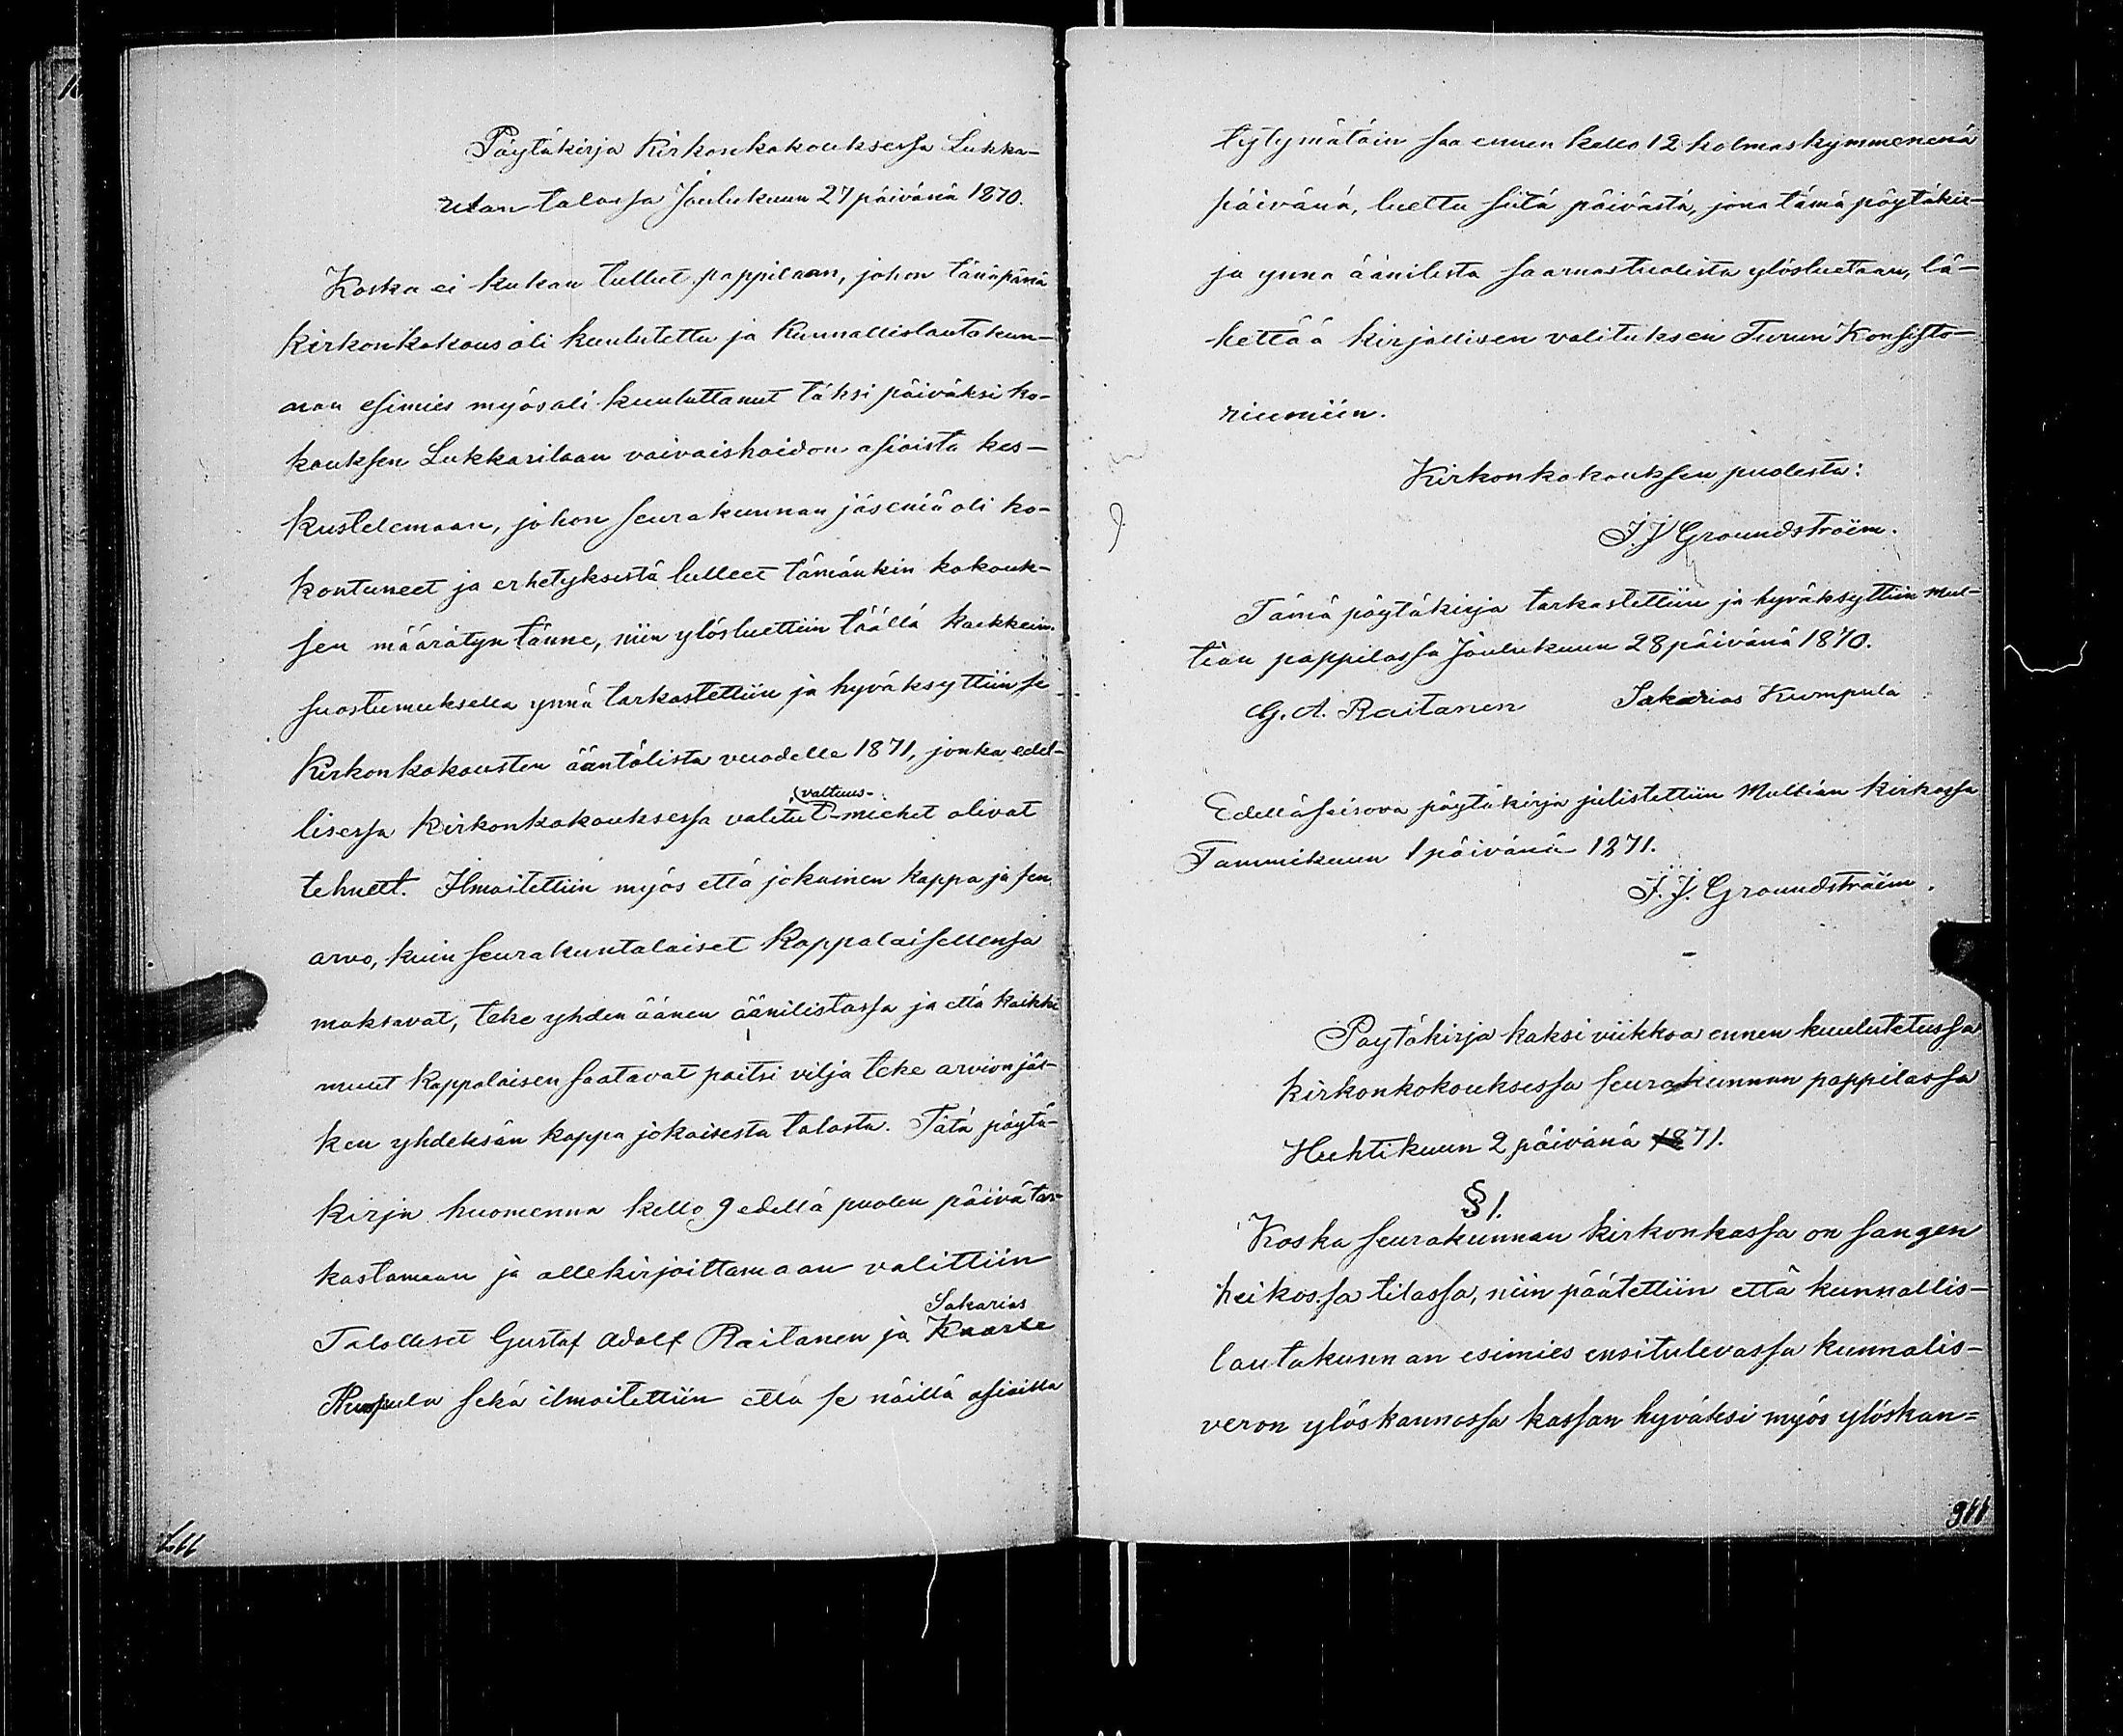 Pöytäkirja Kirkonkokouksessa Lukka-
rilan talossa Joulukuun 27 päivänä 1870.
Koska ei kukan tullut pappilaan, johon tänäpänä
kirkonkokous oli kuulutettu ja Kunnallislautakun-
nan esimies myös oli kuuluttanut täksi päiväksi ko-
kouksen Lukkarilaan vaivaishoidon asioista kes-
kustelemaan, johon seurakunnan jäseniä oli ko-
kontuneet ja erhetyksestä lulleet tämänkin kokouk-
sen määrätyn tänne, niin ylösluettiin täällä kaikkein
suostumuksella ynnä tarkastettiin ja hyväksyttiin se
Kirkonkokousten ääntölista vuodelle 1871, jonka edel-
valtuus-
lisessa Kirkonkokouksessa valitut miehet olivat
tehnett. Ilmoitettiin myös että jokainen kappa ja sen
arvo, kuin seurakuntalaiset Kappalaisellensa
maksavat, teke yhden äänen äänilistassa ja että kaikki
muut Kappalaisen saatavat paitsi vilja teke arvion jäl-
keen yhdeksän kappa jokaisesta talosta. Tätä pöytä-
kirja huomenna kello 9 edellä puolen päivä tar-
kastamaan ja allekirjoittamaan valittiin
Sakarias
Talolliset Gustaf Adolf Raitanen ja Kaarle
Kumpula sekä ilmoitettiin että se näillä asioilla
117
tytymätöin saa ennen kello 12 kolmaskymmenenä
päivänä, luettu siitä päivästä, jona tämä pöytäkir-
ja ynna äänilista saarnastuolista ylösluetaan, lä-
hettää kirjallisen valituksen Turun Konsisto-
riumiin.
Kirkonkokouksen puolesta:
J. J Groundstroëm.
Tämä pöytäkirja tarkastettiin ja hyväksyttiin Mul-
tian pappilassa Joulukuun 28 päivänä 1870.
G. A. Raitanen Sakarias Kumpula
Edelläseisova pöytäkirja julistettiin Multian kirkossa
Tammikuun 1 päivänä 1871.
J. J. Groundstroëm.
Pöytäkirja kaksi viikkoa ennen kuulutetussa
kirkonkokouksessa seurakunnan pappilassa
Huhtikuun 2 päivänä 1871.
§ 1.
Koska seurakunnan kirkonkassa on sangen
heikossa tilassa, niin päätettiin että kunnallis-
lautakunnan esimies ensitulevassa kunnalis-
veron ylöskannossa kassan hyväksi myös ylöskan=
116